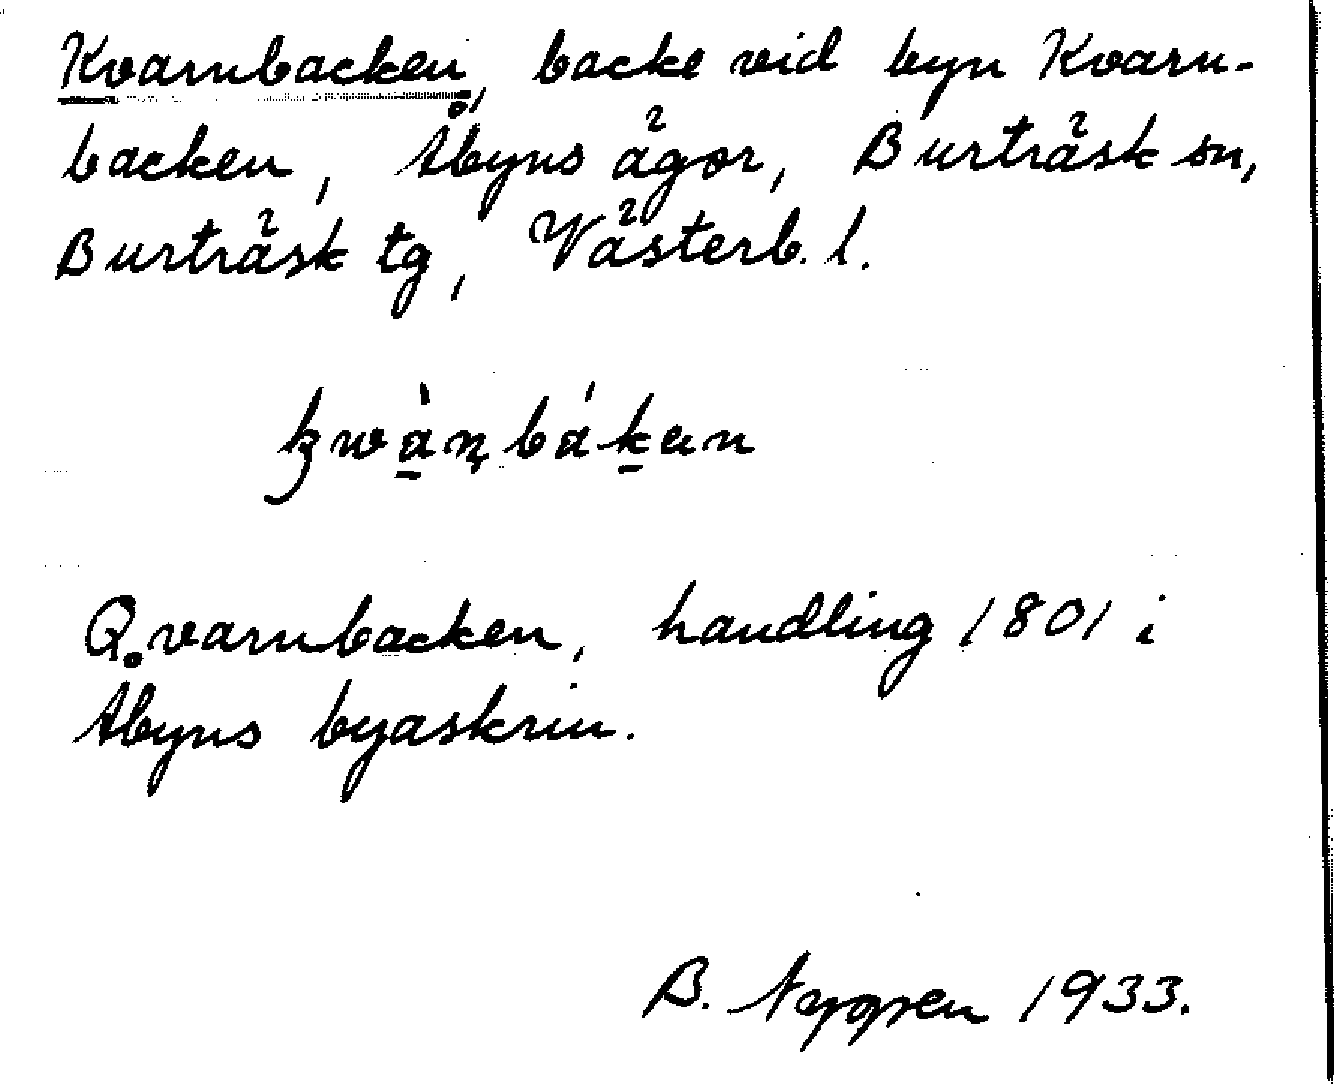 Kvarnbacken, backe vid byn Kvarn-
backen, Åbyns ägor, Burträsk sn,
Burträsk tg, Västerb. l.
kwàṇbákan
Qvarnbacken, handling 1801 i
Åbyns byaskrin.
B. Nygren 1933.